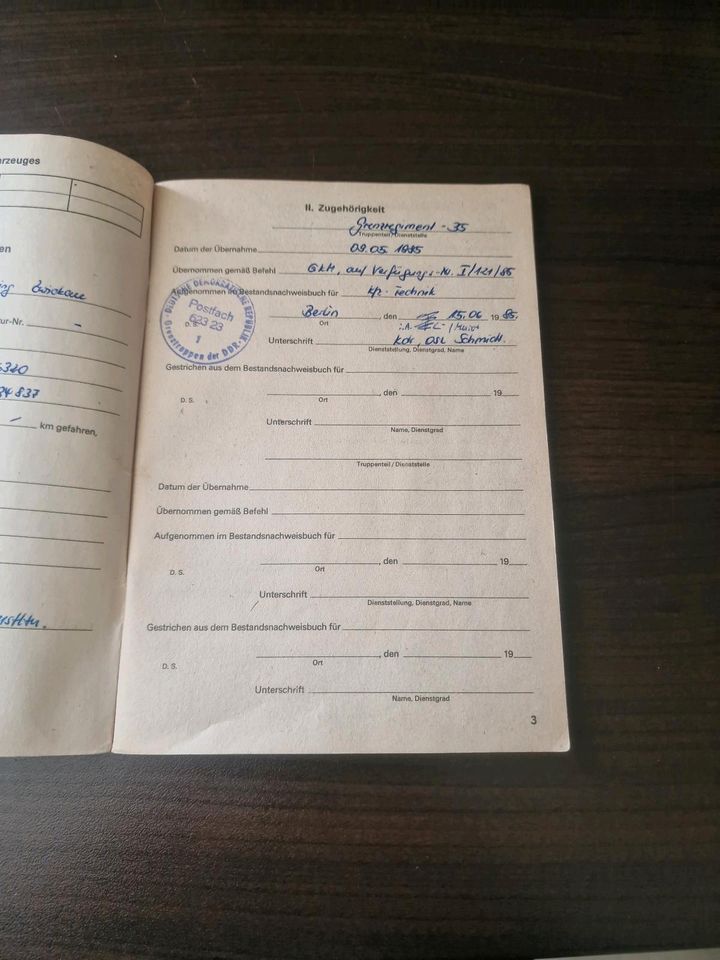 rzeuges
en
Zwickau
ur-Nr. –
320
34837
– km gefahren,
II. Zugehörigkeit
Grenzregiment -35
Truppenteil/Dienststelle
Datum der Übernahme 09.05 1985
Übernommen gemäß Befehl GKM, auf Verfügungs-Nr. I/121/85
Aufgenommen im Bestandsnachweisbuch für Kfz-Technik
DEUTSCHE DEMOKRATISCHE REPUBLIK
Grenztruppen der DDR
Postfach
62323
D. S.
1
Berlin, den 15.06 1985.
Ort
i.A.
Unterschrift Kdr, OSL Schmidt
Dienststellung, Dienstgrad, Name
Gestrichen aus dem Bestandsnachweisbuch für
, den 19
D. S. Ort
Unterschrift
Name, Dienstgrad
Truppenteil/Dienststelle
Datum der Übernahme
Übernommen gemäß Befehl
Aufgenommen im Bestandsnachweisbuch für
, den 19
D. S. Ort
Unterschrift
Dienststellung, Dienstgrad, Name
Gestrichen aus dem Bestandsnachweisbuch für
, den 19
D. S. Ort
Unterschrift
Name, Dienstgrad
3